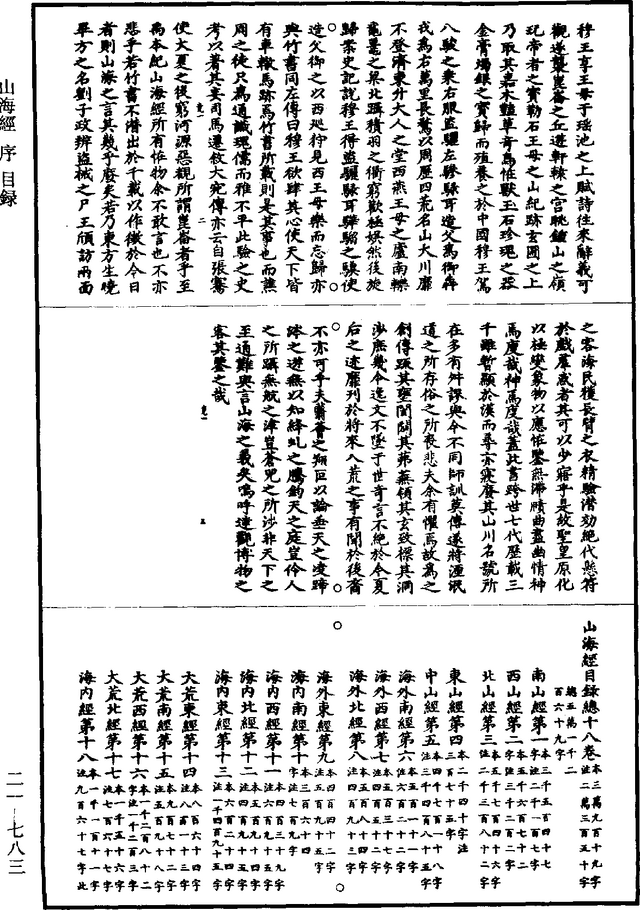 穆王享王母于瑤池之上賦詩往來辭義可
觀遂襲崑崙之丘遊軒轅之宮眺鍾山之嶺
玩帝者之寶勒石王母之山紀跡玄圃之上
乃取其嘉木豔草奇鳥怪獸玉石珍瑰之器
金膏燭銀之寶歸而殖養之於中國穆王駕
八駿之乘右服盜驪左驂騄耳造父為御犇
戎為右萬里長騖以周歷四荒名山大川靡
不登濟東升大人之堂西燕王母之廬南轢
黿鼉之梁北躡積羽之衢窮歡極娛然後旋
歸案史記說穆王得盜驪騄耳驊騮之驥使
造父御之以西巡狩見西王母樂而忘歸亦
與竹書同左傳曰穆王欲肆其心使天下皆
有車轍馬跡焉竹書所載則是其事也而譙
周之徒足為通識瑰儒而雅不平此驗之史
考以著其妄司馬遷敘大宛傳亦云自張騫
使大夏之後窮河源惡覩所謂崑崙者乎至
禹本紀山海經所有怪物余不敢言也不亦
悲乎若竹書不潛出於千載以作徵於今日
者則山海之言其幾乎廢矣若乃東方生曉
畢方之名劉子政辨盜械之尸王頎訪兩面
之客海民獲長臂之衣精驗潛効絕代懸符
於戲羣惑者其可以少寤乎是故聖皇原化
以極變象物以應怪鑒無滯賾曲盡幽情神
焉廋哉神焉廋哉蓋此書跨世七代歷載三
千雖暫顯於漢而尋亦寢廢其山川名號所
在多有舛謬與今不同師訓莫傳遂將湮泯
道之所存俗之所喪悲夫余有懼焉故為之
創傳疏其壅閡闢其茀蕪領其玄致標其洞
涉庶幾令逸文不墜于世奇言不絕於今夏
后之迹靡刊於將來八荒之事有聞於後裔
不亦可乎夫蘙薈之翔叵以論垂天之凌蹄
涔之遊無以知絳虬之騰鈞天之庭豈伶人
之所躡無航之津豈蒼兕之所涉非天下之
至通難與言山海之義矣嗚呼達觀博物之
客其鑒之哉
山海經目錄總十八卷 本三萬九百十九字注二萬三百五十字總五萬一千二百六十九字
南山經第一 本三千五百四十七字注二千一百七字
西山經第二 本五千六百七十二字注三千二百二字
北山經第三 本五千七百四十六字注二千三百八十二字
東山經第四 本二千四十字注三百七十五字
中山經第五 本四千七百一十八字注三千四百八十五字
海外南經第六 本五百一十一字注六百二十二字
海外西經第七 本五百三十七字注四百五十二字
海外北經第八 本五百八十四字注四百九十三字
海外東經第九 本四百四十字注五百九十五字
海內南經第十 本三百六十四字注七百九字
海內西經第十一 本四百三十九字注六百九十五字
海內北經第十二 本五百九十四字注四百九十五字
海內東經第十三 本六百二十四字注一千四百九十五字
大荒東經第十四 本八百六十四字注八百一十三字
大荒南經第十五 本九百七十二字注五百九十八字
大荒西經第十六 本一千二百八十二字注一千二百三字
大荒北經第十七 本一千五十六字注七百七十六字
海內經第十八 本一千一百十一字注九百六十七字此
山海經 序 目錄
二一—七八三